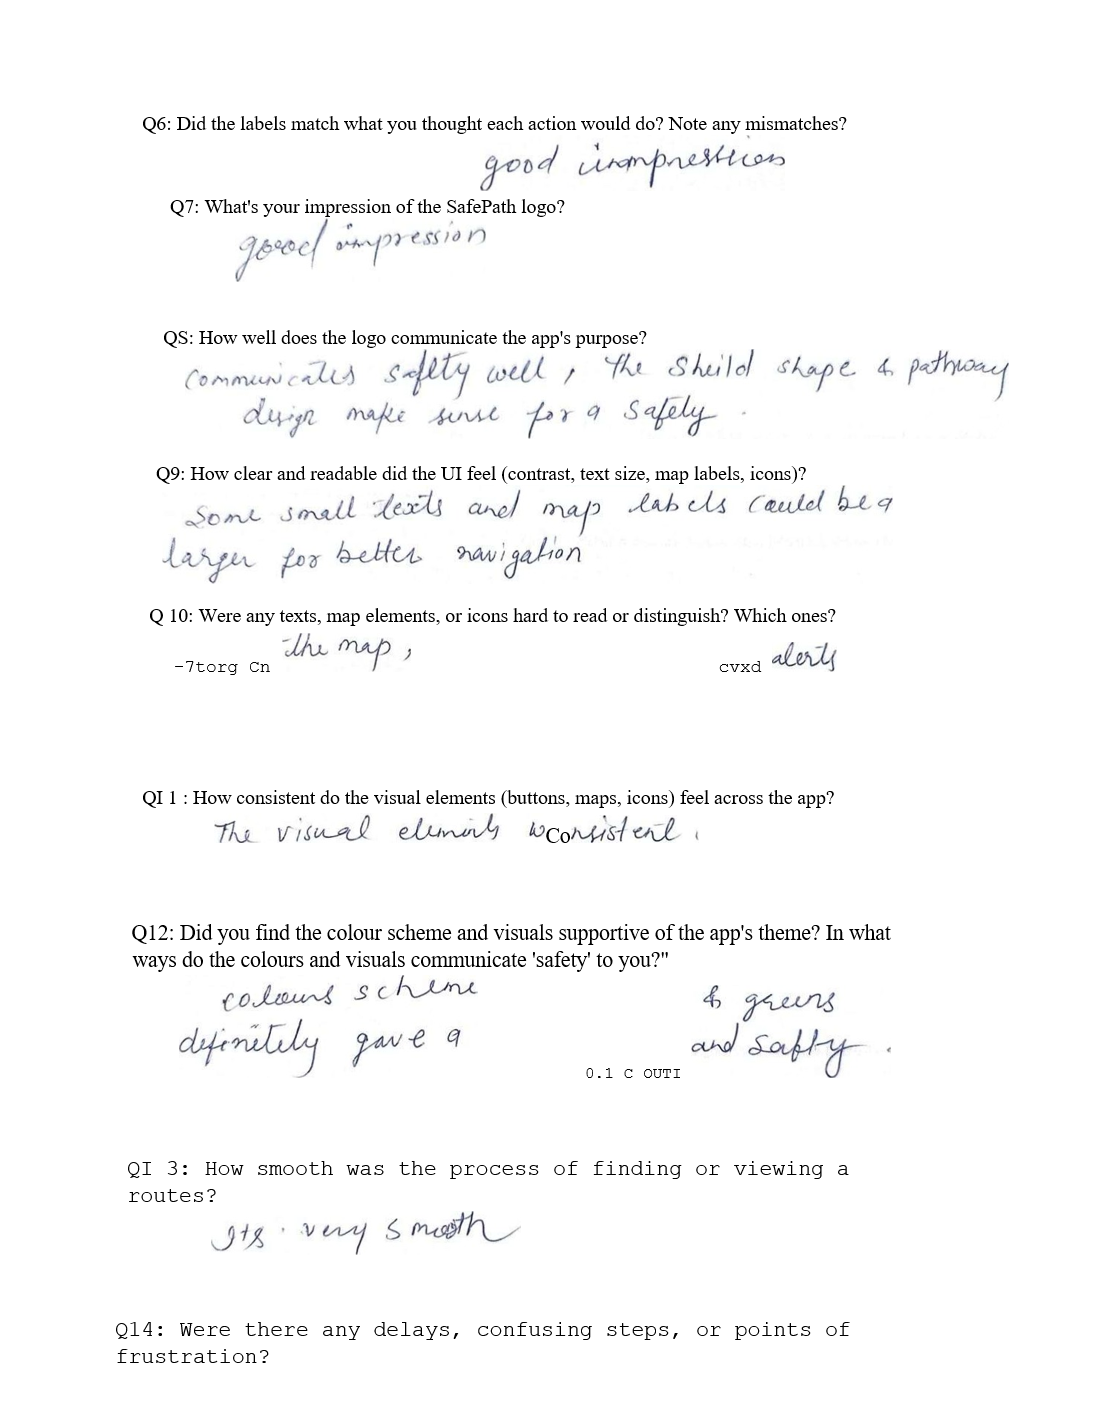 Q6: Did the labels match what you thought each action would do? Note any mismatches?
good
Q7: What's your impression of the SafePath logo?
good impression
QS: How well does the logo communicate the app's purpose?
Communicates safety well, the Sheild shape & pathway
design make sense for a Safety.
Q9: How clear and readable did the UI feel (contrast, text size, map labels, icons)?
Some small texts and map labels could be a
larger for better navigation
Q 10: Were any texts, map elements, or icons hard to read or distinguish? Which ones?
-7torg Cn the map, cvxd alerts
QI 1 : How consistent do the visual elements (buttons, maps, icons) feel across the app?
The visual elements Consistent.
Q12: Did you find the colour scheme and visuals supportive of the app's theme? In what
ways do the colours and visuals communicate 'safety' to you?"
colours scheme & greens
definitely gave a 0.1 C OUTI and Safty.
QI 3: How smooth was the process of finding or viewing a
routes?
Its very smooth
Q14: Were there any delays, confusing steps, or points of
frustration?